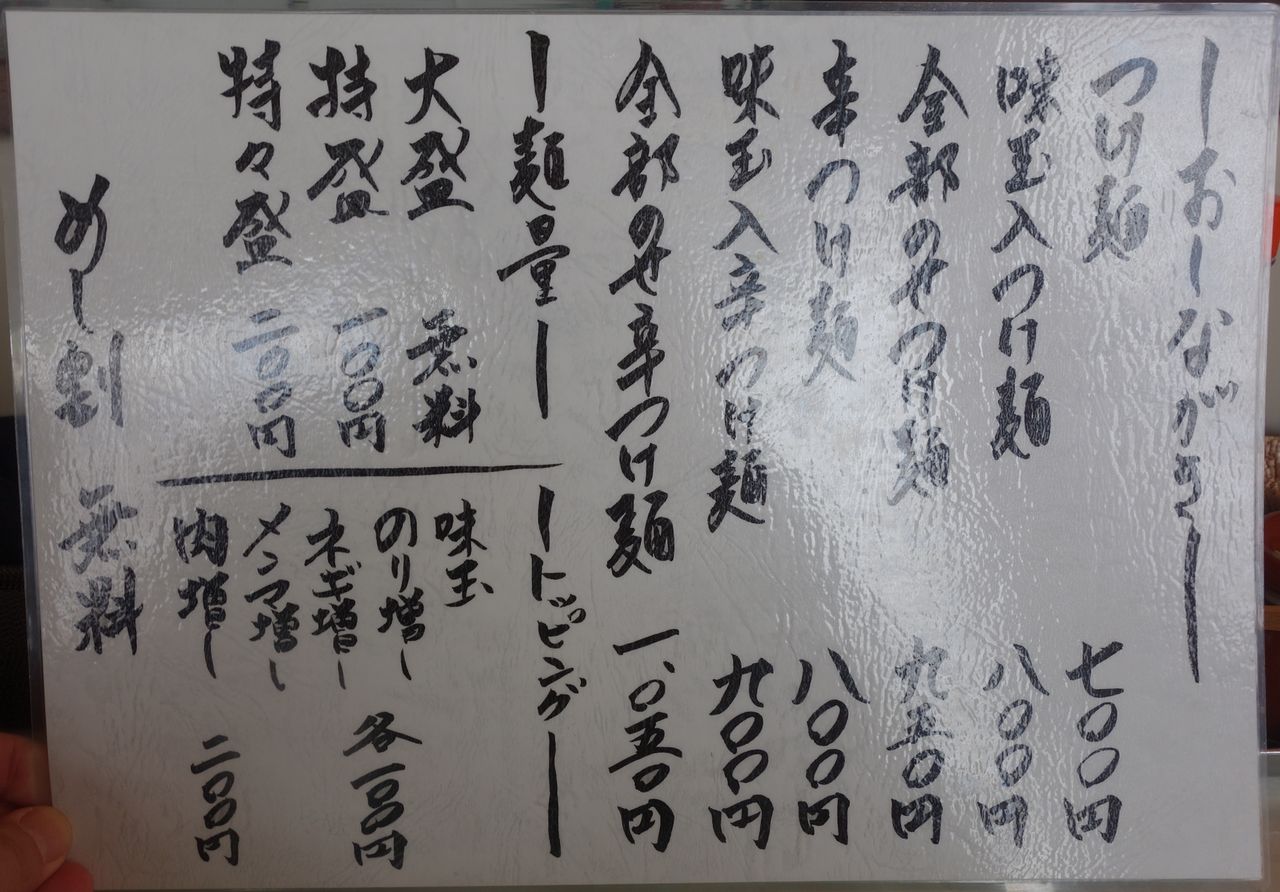 ーおーしながきー
つけ麺 七〇〇円
味玉入つけ麺 八〇〇円
全部のせつけ麺 九五〇円
辛つけ麺 八〇〇円
味玉入辛つけ麺 九〇〇円
全部のせ辛つけ麺 一、〇五〇円
ー麺量ー
大盛 無料
特盛 一〇〇円
特々盛 二〇〇円
ートッピングー
味玉
のり増し
ネギ増し
メンマ増し
各一〇〇円
肉増し 二〇〇円
めし割 無料